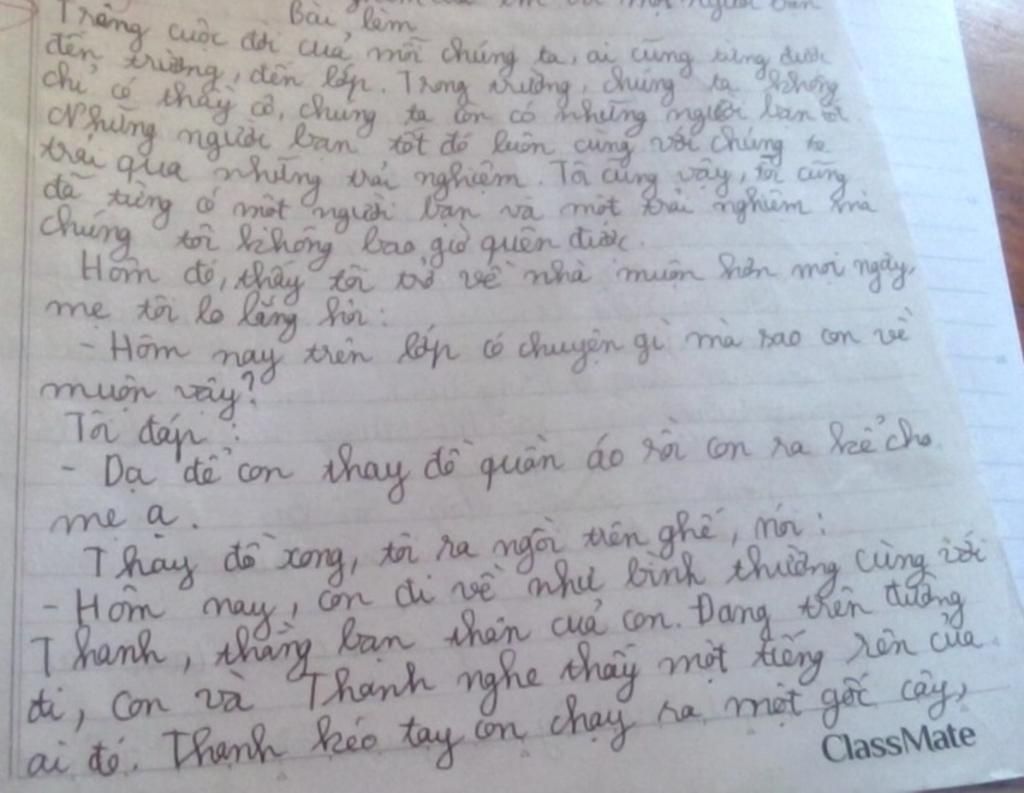 Bài làm
Trong cuộc đời của mỗi chúng ta, ai cũng từng được
đến trường, đến lớp. Trong trường, chúng ta không
chỉ có thầy cô, chúng ta còn có những người bạn tốt.
Những người bạn tốt đó luôn cùng với chúng ta
trải qua những trải nghiệm. Tôi cũng vậy, tôi cũng
đã từng có một người bạn và một trải nghiệm mà
chúng tôi không bao giờ quên được.
Hôm đó, thấy tôi trở về nhà muộn hơn mọi ngày,
mẹ tôi lo lắng hỏi:
- Hôm nay trên lớp có chuyện gì mà sao con về
muộn vậy?
Tôi đáp:
- Dạ để con thay đồ quần áo rồi con ra kể cho
mẹ ạ.
Thay đồ xong, tôi ra ngồi trên ghế, nói:
- Hôm nay, con đi về như bình thường cùng với
Thanh, thằng bạn thân của con. Đang trên đường
đi, con và Thanh nghe thấy một tiếng rên của
ai đó. Thanh kéo tay con chạy ra một gốc cây,
ClassMate